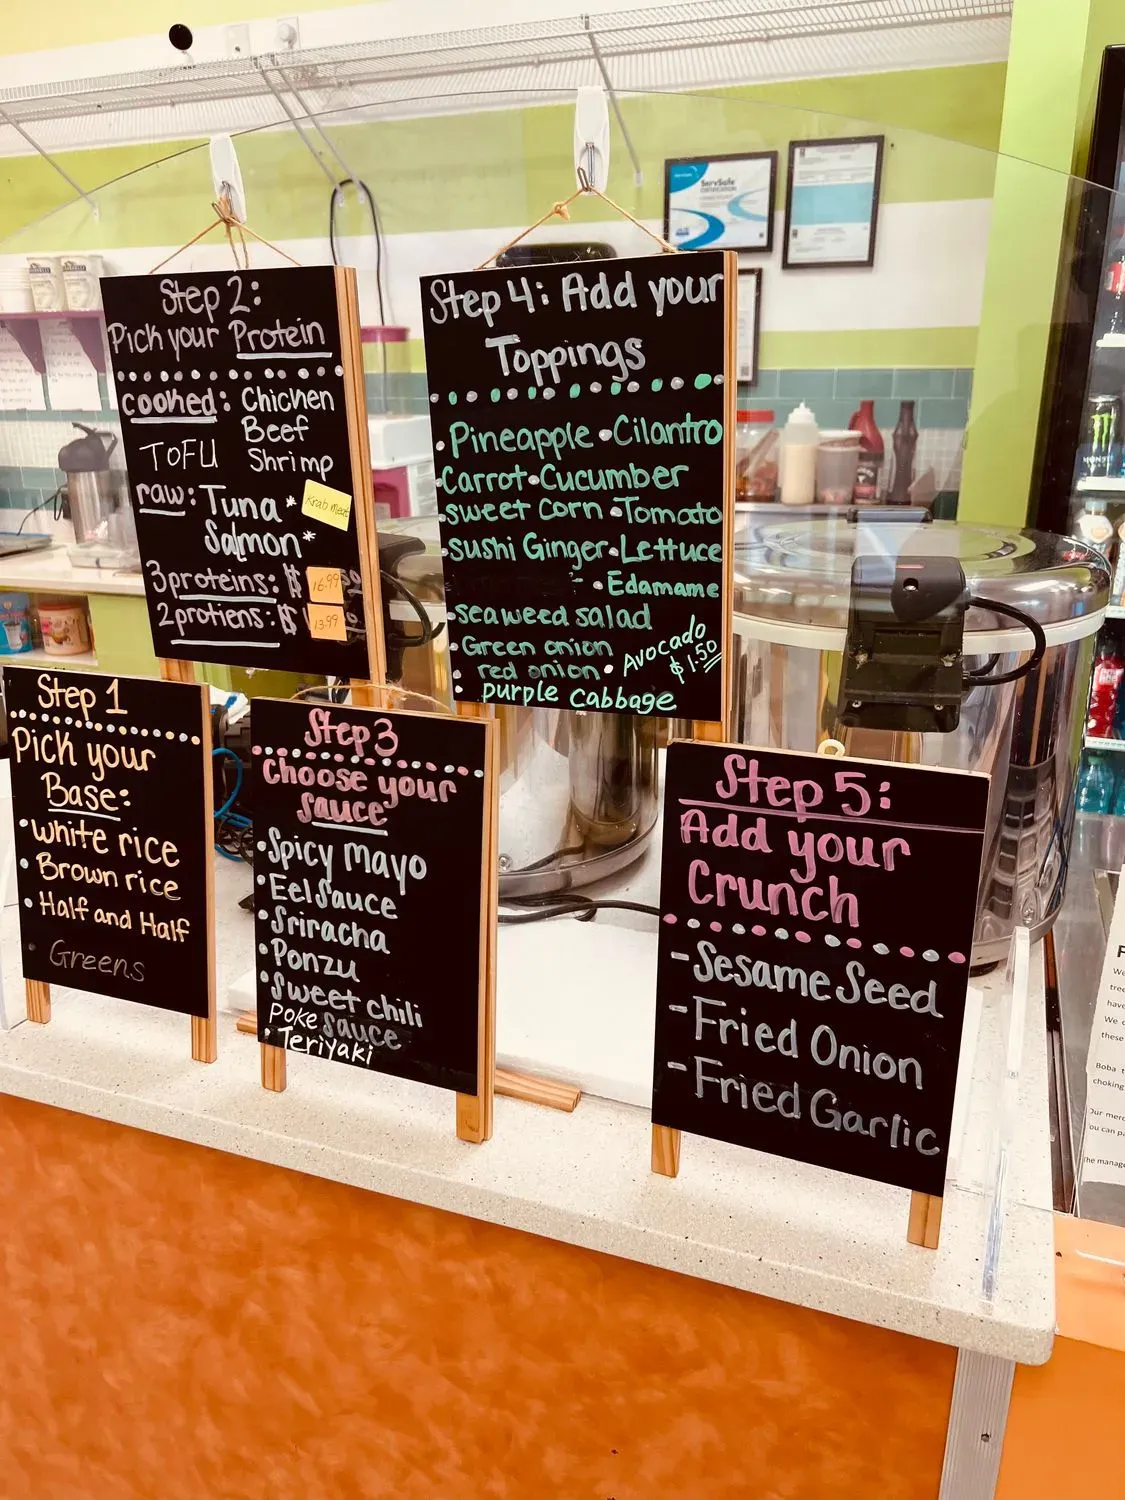 Step 2:
Pick your Protein
cooked: Chicken
Beef
TOFU Shrimp
raw: Tuna *
Krab meat
Salmon *
3 proteins: $ 16.99
2 protiens: $ 13.99
Step 4: Add your
Toppings
• Pineapple • Cilantro
• Carrot • Cucumber
• sweet corn • Tomato
• sushi Ginger • Lettuce
• Edamame
• seaweed salad
• Green onion
• red onion • Avocado
$1.50
• purple cabbage
Step 1
Pick your
Base:
• white rice
• Brown rice
• Half and Half
• Greens
Step 3
choose your
sauce
• Spicy Mayo
• Eel Sauce
• Sriracha
• Ponzu
• Sweet chili
Poke sauce
• Teriyaki
Step 5:
Add your
Crunch
- Sesame Seed
- Fried Onion
- Fried Garlic
ServSafe
CERTIFICATION
MONSTER